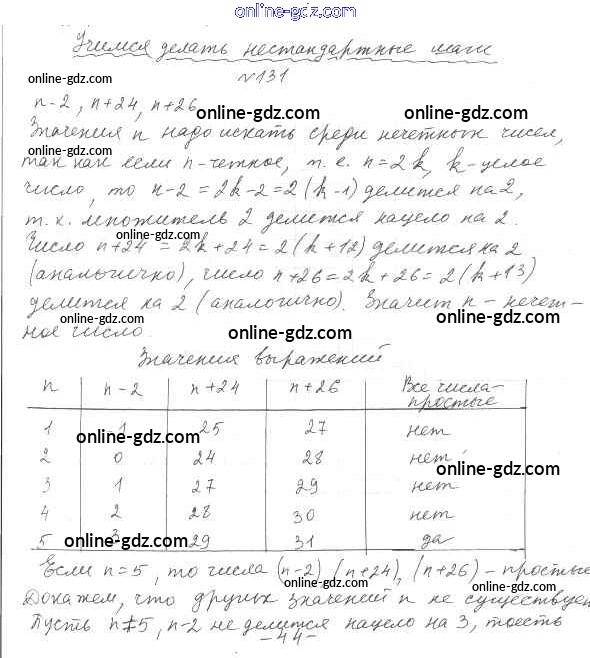 online-gdz.com
Учимся делать нестандартные шаги
online-gdz.com
№131
n-2, n+24, n+26
online-gdz.com online-gdz.com
Значения n надо искать среди нечетных чисел,
online-gdz.com
так как если n-четное, т. е. n=2k, k-целое
число, то n-2=2k-2=2(k-1) делится на 2,
т. к. множитель 2 делится нацело на 2.
online-gdz.com online-gdz.com
Число n+24=2k+24=2(k+12) делится на 2
(аналогично), число n+26=2k+26=2(k+13)
делится на 2 (аналогично). Значит n-нечет-
online-gdz.com
ное число.
online-gdz.com
Значения выражений
n n-2 n+24 n+26 Все числа-
простые
1 -1 25 27 нет
online-gdz.com
2 0 24 28 нет
online-gdz.com
3 1 27 29 нет
4 2 28 30 нет
online-gdz.com
5 3 29 31 да
Если n=5, то числа (n-2), (n+24), (n+26)-простые
online-gdz.com
Докажем, что других значений n не существует
online-gdz.com
Пусть n≠5, n-2 не делится нацело на 3, тоесть
-44-